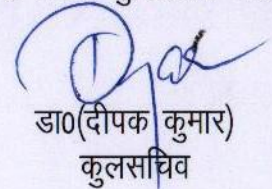 डा0(दीपक कुमार)
कुलसचिव